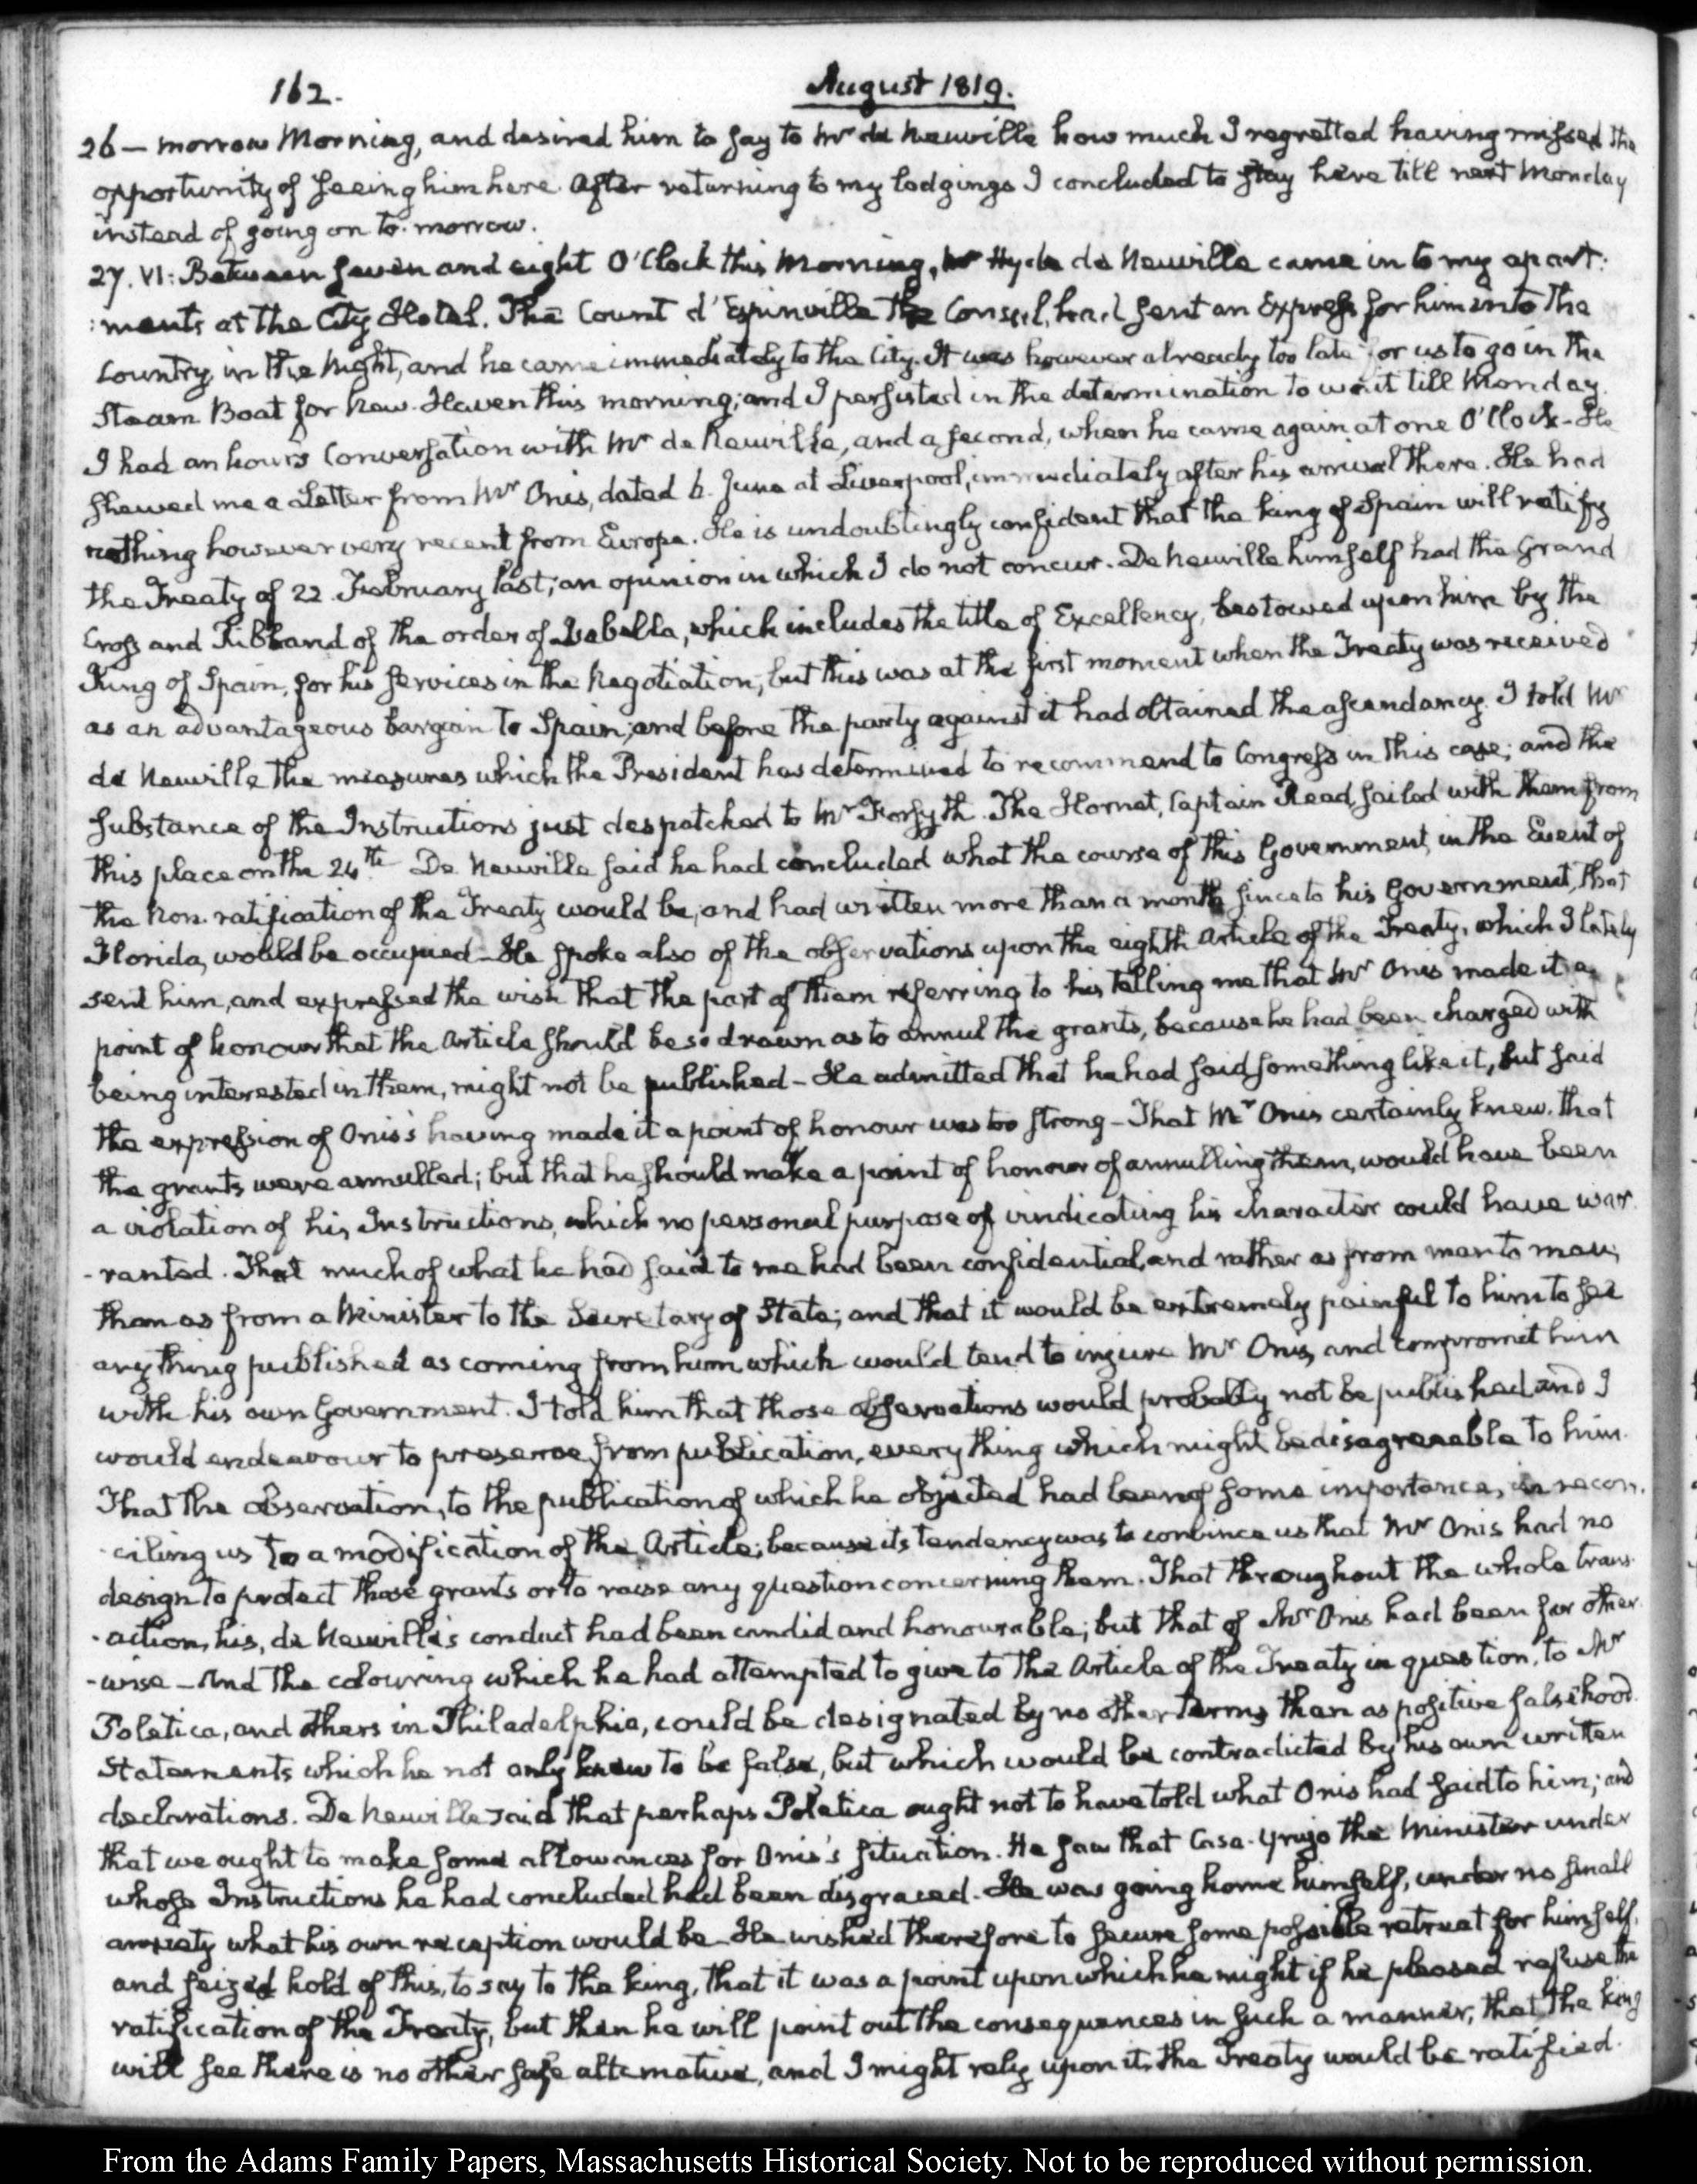 162.
August 1819.
26 — morrow Morning, and desired him to say to Mr de Neuville how much I regretted having missed the
opportunity of seeing him here. After returning to my lodgings I concluded to stay here till next Monday
instead of going on to-morrow.
27. VI: Between seven and eight O'Clock this Morning, Mr Hyde de Neuville came in to my apart:
:ments at the City Hotel. The Count d'Espinville the Consul, had sent an Express for him into the
Country, in the Night, and he came immediately to the City. It was however already too late for us to go in the
Steam Boat for New-Haven this morning; and I persisted in the determination to wait till Monday.
I had an hour's Conversation with Mr de Neuville, and a second, when he came again at one O'Clock - He
shewed me a Letter from Mr Onis, dated 6. June at Liverpool, immediately after his arrival there. He had
nothing however very recent from Europe. He is undoubtingly confident that the king of Spain will ratify
the Treaty of 22 February last; an opinion in which I do not concur. De Neuville himself had the Grand
Cross and Ribband of the order of Isabella, which includes the title of Excellency, bestowed upon him by the
King of Spain, for his services in the Negotiation; but this was at the first moment when the Treaty was received
as an advantageous bargain to Spain; and before the party against it had obtained the ascendancy. I told Mr
de Neuville the measures which the President has determined to recommend to Congress in this case; and the
substance of the Instructions just despatched to Mr Forsyth. The Hornet, Captain Read, sailed with them from
this place on the 24th. De Neuville said he had concluded what the course of this Government, in the Event of
the Non-ratification of the Treaty would be, and had written more than a month since to his Government, that
Florida, would be occupied - He spoke also of the observations upon the eighth Article of the Treaty, which I lately
sent him, and expressed the wish that the part of them referring to his telling me that Mr Onis made it a
point of honour that the Article should be so drawn as to annul the grants, because he had been charged with
being interested in them, might not be published - He admitted that he had said something like it, but said
the expression of Onis's having made it a point of honour was too strong - That Mr Onis certainly knew that
the grants were annulled; but that he should make a point of honour of annulling them, would have been
a violation of his Instructions, which no personal purpose of vindicating his character could have war-
-ranted. That much of what he had said to me had been confidential, and rather as from man to man,
than as from a Minister to the Secretary of State; and that it would be extremely painful to him to see
any thing published as coming from him which would tend to injure Mr Onis, and compromit him
with his own Government. I told him that those observations would probably not be published and I
would endeavour to preserve from publication, every thing which might be disagreeable to him.
That the observation, to the publication of which he objected had been of some importance, in recon-
-ciling us to a modification of the Article; because its tendency was to convince us that Mr Onis had no
design to protect those grants or to raise any question concerning them. That throughout the whole trans-
-action, his, de Neuville's conduct had been candid and honourable; but that of Mr Onis had been far other-
-wise - And the colouring which he had attempted to give to the Article of the Treaty in question, to Mr
Poletica, and others in Philadelphia, could be designated by no other terms than as positive falsehood.
Statements which he not only knew to be false, but which would be contradicted by his own written
declarations. De Neuville said that perhaps Poletica ought not to have told what Onis had said to him; and
that we ought to make some allowances for Onis's situation. He saw that Casa-Yrujo the Minister under
whose Instructions he had concluded had been disgraced. He was going home himself, under no small
anxiety what his own reception would be. He wished therefore to secure some possible retreat for himself,
and seized hold of this, to say to the king, that it was a point upon which he might if he pleased refuse the
ratification of the Treaty, but then he will point out the consequences in such a manner, that the king
will see there is no other safe alternative, and I might rely upon it, the Treaty would be ratified.
From the Adams Family Papers, Massachusetts Historical Society. Not to be reproduced without permission.